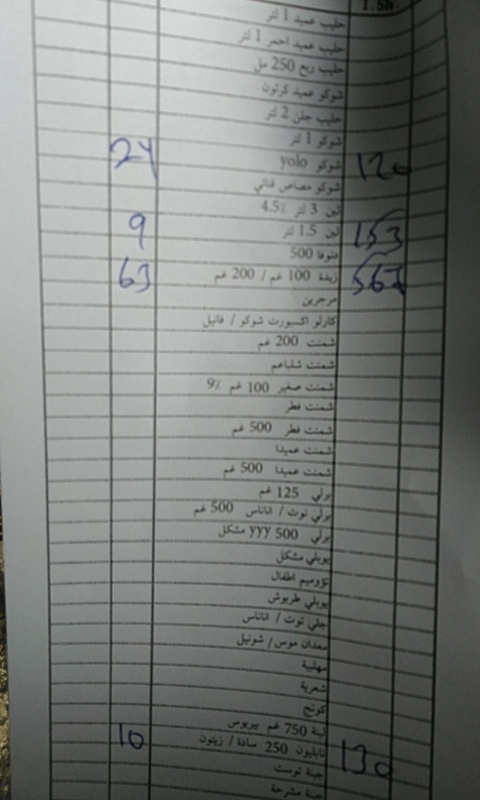 I.Sh
حليب عميد 1 لتر
حليب عميد احمر 1 لتر
حليب ربع 250 مل
شوكو عميد كرتون
حليب جلن 2 لتر
شوكو 1 لتر
120 شوكو yolo 24
شوكو مصاص قناني
لبن 3 لتر 4.5٪
153 لبن 1.5 لتر 9
دنوفا 500
567 زبدة 100 غم / 200 غم 63
مرجرين
كارلو اكسبورت شوكو / فانيل
شمنت 200 غم
شمنت شلباعم
شمنت صغير 100 غم 9٪
شمنت فطر
شمنت فطر 500 غم
شمنت عميدا
شمنت عميدا 500 غم
برلي 125 غم
برلي توت / اناناس 500 غم
برلي 500 yyy مشكل
يوبلي مشكل
تؤوميم اطفال
يوبلي طربوش
جلي توت / اناناس
معدان موس / شونيل
مهلبية
شعرية
كوتج
لبنة 750 غم بيريوس
130 نابليون 250 سادة / زيتون 10
جبنة توست
جبنة مشرحة